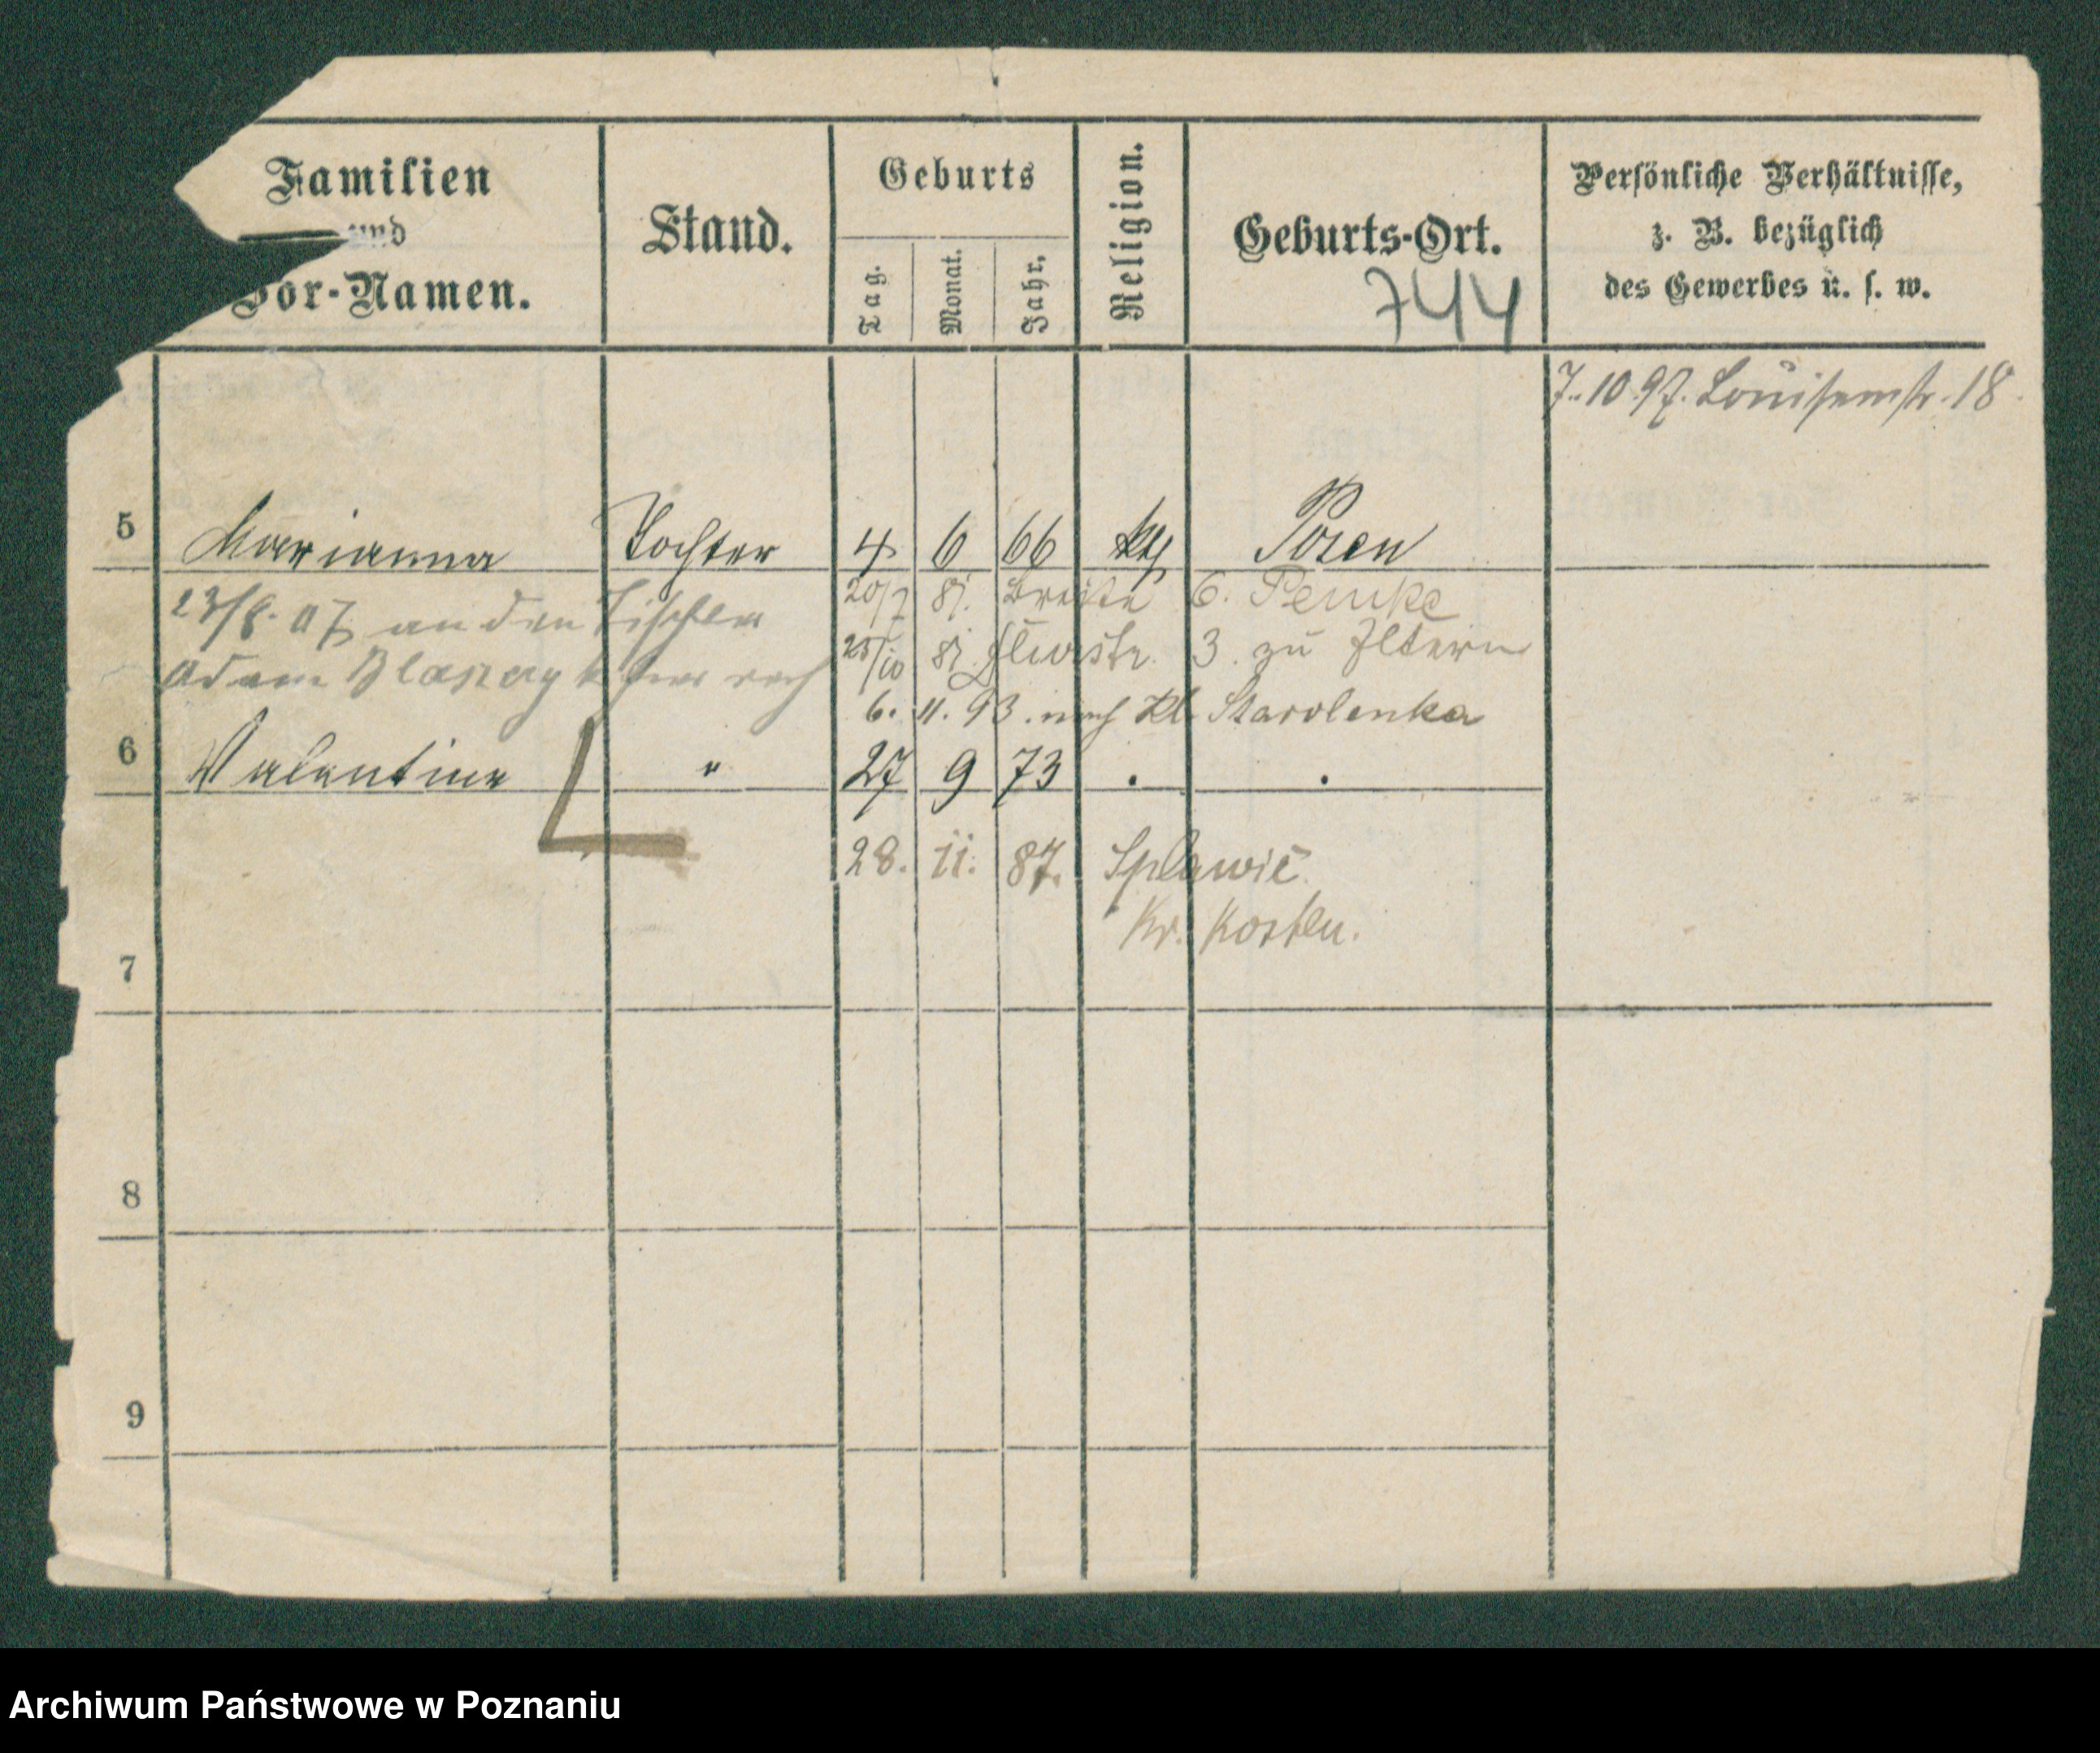 Familien
und
Vor-Namen.
Stand.
Geburts
Tag.
Monat.
Jahr.
Religion.
Geburts-Ort.
744
Persönliche Verhältnisse,
z. B. bezüglich
des Gewerbes u. s. w.
7.10.97. Louisenstr. 18.
5 Marianna Tochter 4 6 66 kth Posen
20/7 81. Breite 6. Pemke
23/8. 07 an den Tischler
25/10 81. 3. zu Eltern
Adam
6. 11. 93. nach Kl. Starolenka
6 Valentina " 27 9 73 . .
28. 11. 87. Splawie
Kr. Kosten.
7
8
9
Archiwum Państwowe w Poznaniu